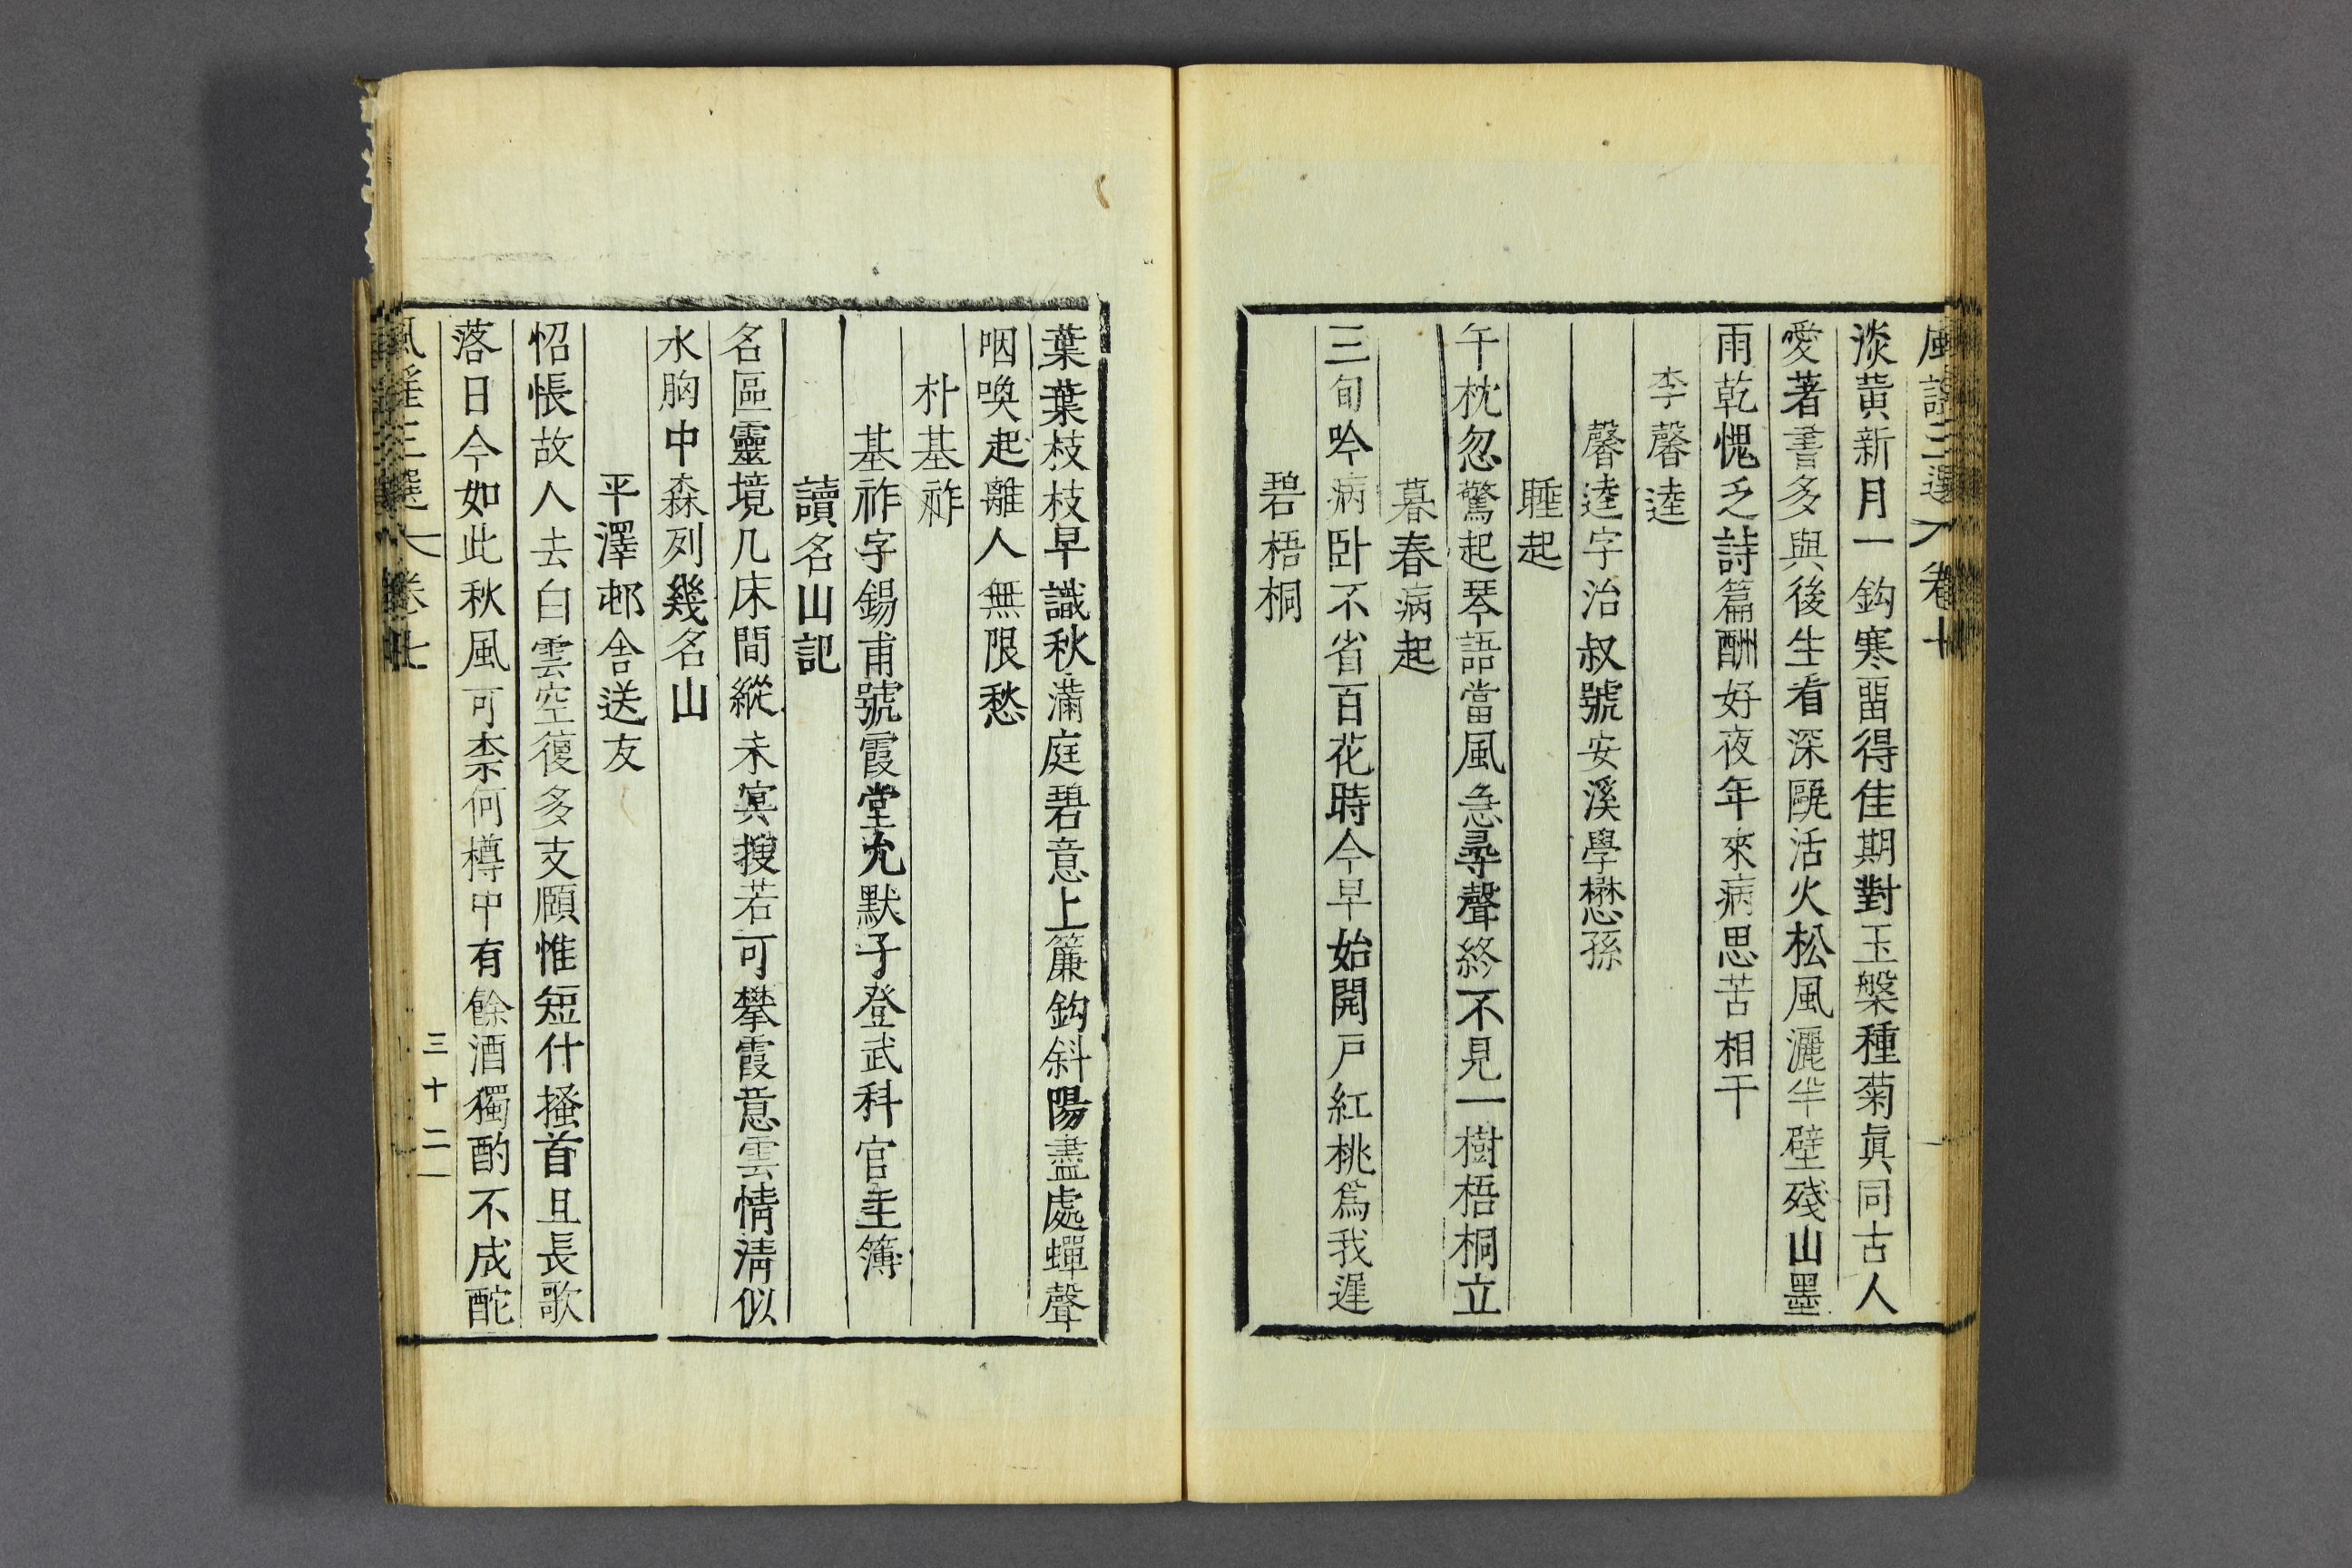 風謠三選 卷七
淡黃新月一鈎寒畱得佳期對玉槃種菊眞同古人
愛著書多與後生看深甌活火松風灑半壁殘山墨
雨乾愧乏詩篇酬好夜年來病思苦相干
李馨逵
馨逵字治叔號安溪學懋孫
睡起
午枕忽驚起琴語當風急尋聲終不見一樹梧桐立
暮春病起
三旬吟病卧不省百花時今早始開戶紅桃爲我遲
碧梧桐
葉葉枝枝早識秋滿庭碧意上簾鈎斜陽盡處蟬聲
咽喚起離人無限愁
朴基祚
基祚字錫甫號霞堂允默子登武科官主簿
讀名山記
名區靈境几床間縱未寘搜若可攀霞意雲情淸似
水胸中森列幾名山
平澤邨舍送友
怊悵故人去白雲空復多支頤惟短什搔首且長歌
落日今如此秋風可柰何樽中有餘酒獨酌不成酡
風謠三選 卷七
三十二